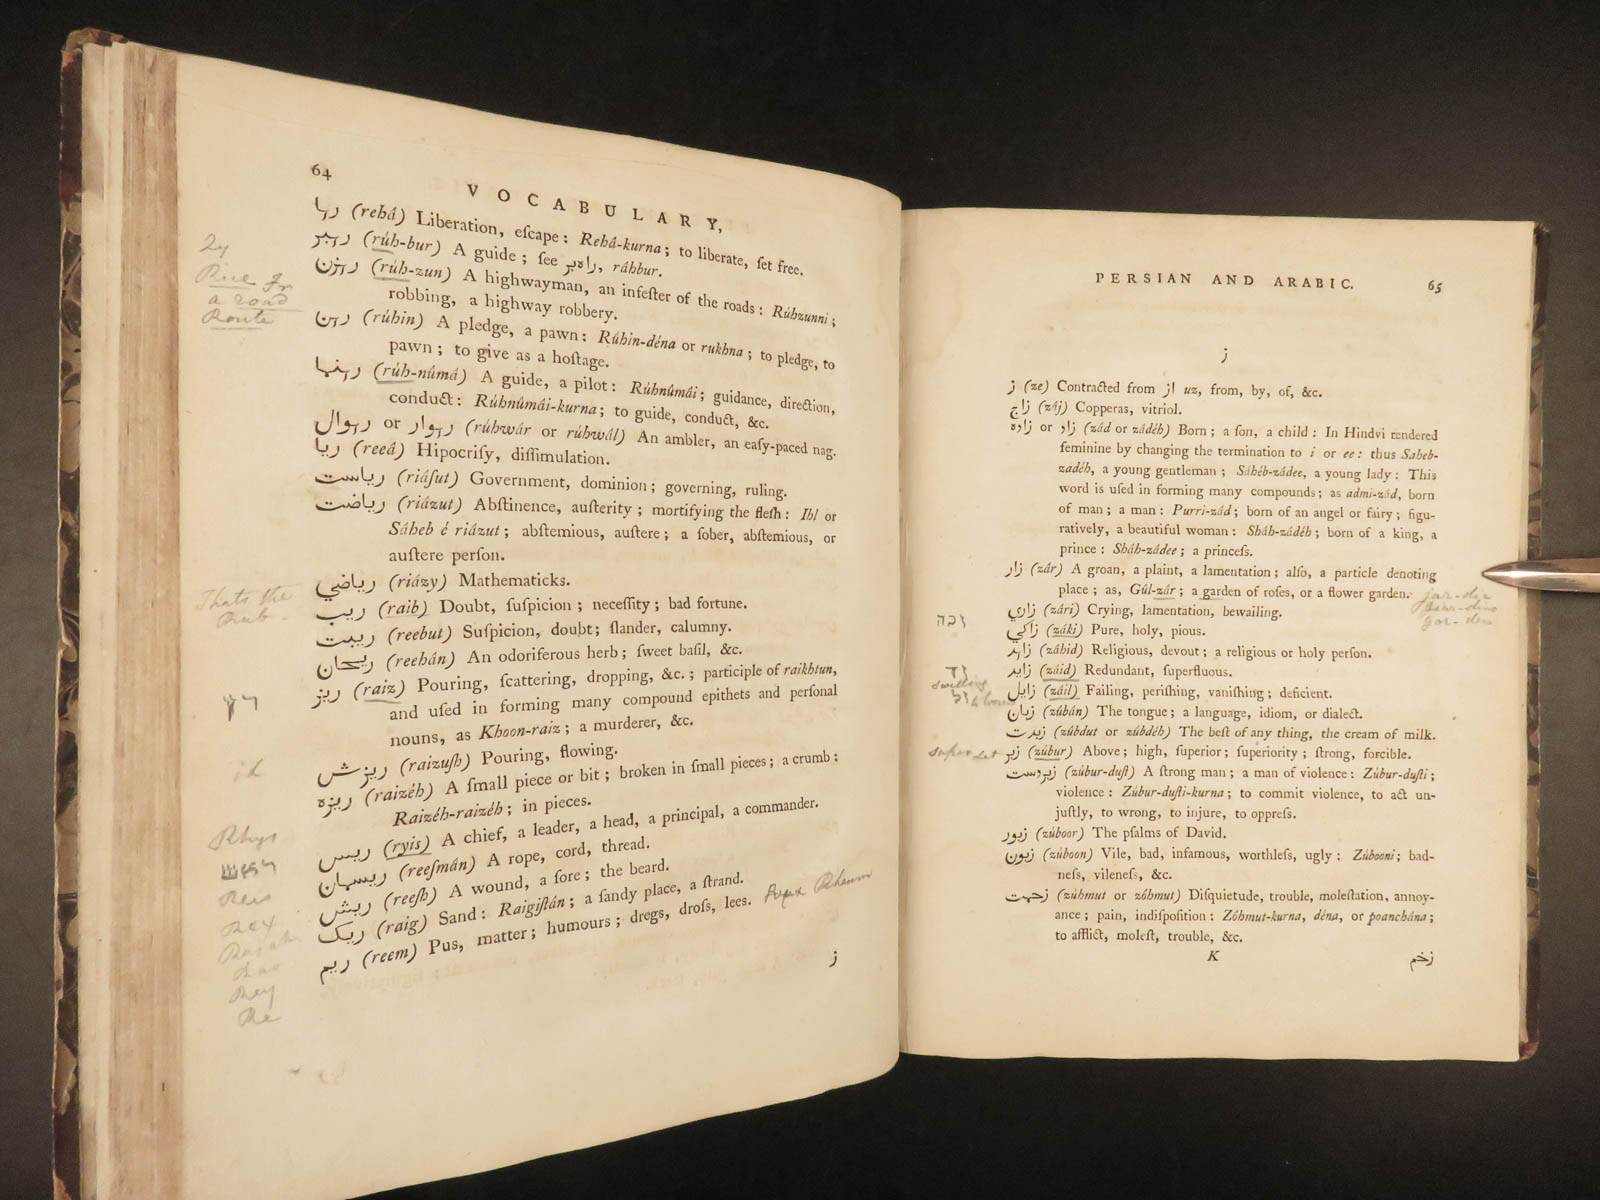 64
VOCABULARY,
رہا (rehâ) Liberation, eſcape: Rehâ-kurna; to liberate, ſet free.
رہبر (rúh-bur) A guide; ſee راہبر, ráhbur.
رہزن (rúh-zun) A highwayman, an infeſter of the roads: Rúhzunni;
robbing, a highway robbery.
رہن (rúhin) A pledge, a pawn: Rúhin-déna or rukhna; to pledge, to
pawn; to give as a hoſtage.
رہنما (rúh-nûmá) A guide, a pilot: Rúhnûmái; guidance, direction,
conduct: Rúhnûmái-kurna; to guide, conduct, &c.
رہوار or رہوال (rúhwár or rúhwál) An ambler, an eaſy-paced nag.
ریا (reeâ) Hipocriſy, diſſimulation.
ریاست (riáſut) Government, dominion; governing, ruling.
ریاضت (riázut) Abſtinence, auſterity; mortifying the fleſh: Ihl or
Sáheb é riázut; abſtemious, auſtere; a ſober, abſtemious, or
auſtere perſon.
ریاضي (riázy) Mathematicks.
ریب (raib) Doubt, ſuſpicion; neceſſity; bad fortune.
ریبت (reebut) Suſpicion, doubt; ſlander, calumny.
ریحان (reehán) An odoriferous herb; ſweet baſil, &c.
ریز (raiz) Pouring, ſcattering, dropping, &c.; participle of raikhtun,
and uſed in forming many compound epithets and perſonal
nouns, as Khoon-raiz; a murderer, &c.
ریزش (raizuſh) Pouring, flowing.
ریزہ (raizéh) A ſmall piece or bit; broken in ſmall pieces; a crumb:
Raizéh-raizéh; in pieces.
ریس (ryis) A chief, a leader, a head, a principal, a commander.
ریسمان (reeſmán) A rope, cord, thread.
ریش (reeſh) A wound, a ſore; the beard.
ریک (raig) Sand: Raigiſtán; a ſandy place, a ſtrand.
ریم (reem) Pus, matter; humours; dregs, droſs, lees.
ز
Rue fr
a road
Route
Thats the
Rub
Rhys
Reis
Rex
Rey
Re
PERSIAN AND ARABIC.
65
ز
ز (ze) Contracted from از uz, from, by, of, &c.
زاج (záj) Copperas, vitriol.
زاد or زادہ (zád or zádéh) Born; a ſon, a child: In Hindvi rendered
feminine by changing the termination to i or ee: thus Saheb-
zadéh, a young gentleman; Sáhéb-zádee, a young lady: This
word is uſed in forming many compounds; as admi-zád, born
of man; a man: Purri-zád; born of an angel or fairy; figu-
ratively, a beautiful woman: Sháh-zádéh; born of a king, a
prince: Sháh-zádee; a princeſs.
زار (zár) A groan, a plaint, a lamentation; alſo, a particle denoting
place; as, Gúl-zár; a garden of roſes, or a flower garden.
زاري (zári) Crying, lamentation, bewailing.
زاكي (záki) Pure, holy, pious.
زاہد (záhid) Religious, devout; a religious or holy perſon.
زاید (záid) Redundant, ſuperfluous.
زایل (záil) Failing, periſhing, vaniſhing; deficient.
زبان (zúbán) The tongue; a language, idiom, or dialect.
زبدت (zúbdut or zúbdéh) The beſt of any thing, the cream of milk.
زبر (zúbur) Above; high, ſuperior; ſuperiority; ſtrong, forcible.
زبردست (zúbur-duſt) A ſtrong man; a man of violence: Zúbur-duſti;
violence: Zúbur-duſti-kurna; to commit violence, to act un-
juſtly, to wrong, to injure, to oppreſs.
زبور (zúboor) The pſalms of David.
زبون (zúboon) Vile, bad, infamous, worthleſs, ugly: Zúbooni; bad-
neſs, vileneſs, &c.
زحمت (zúhmut or zóhmut) Diſquietude, trouble, moleſtation, annoy-
ance; pain, indiſpoſition: Zóhmut-kurna, déna, or poanchána;
to afflict, moleſt, trouble, &c.
K
زخم
זכה